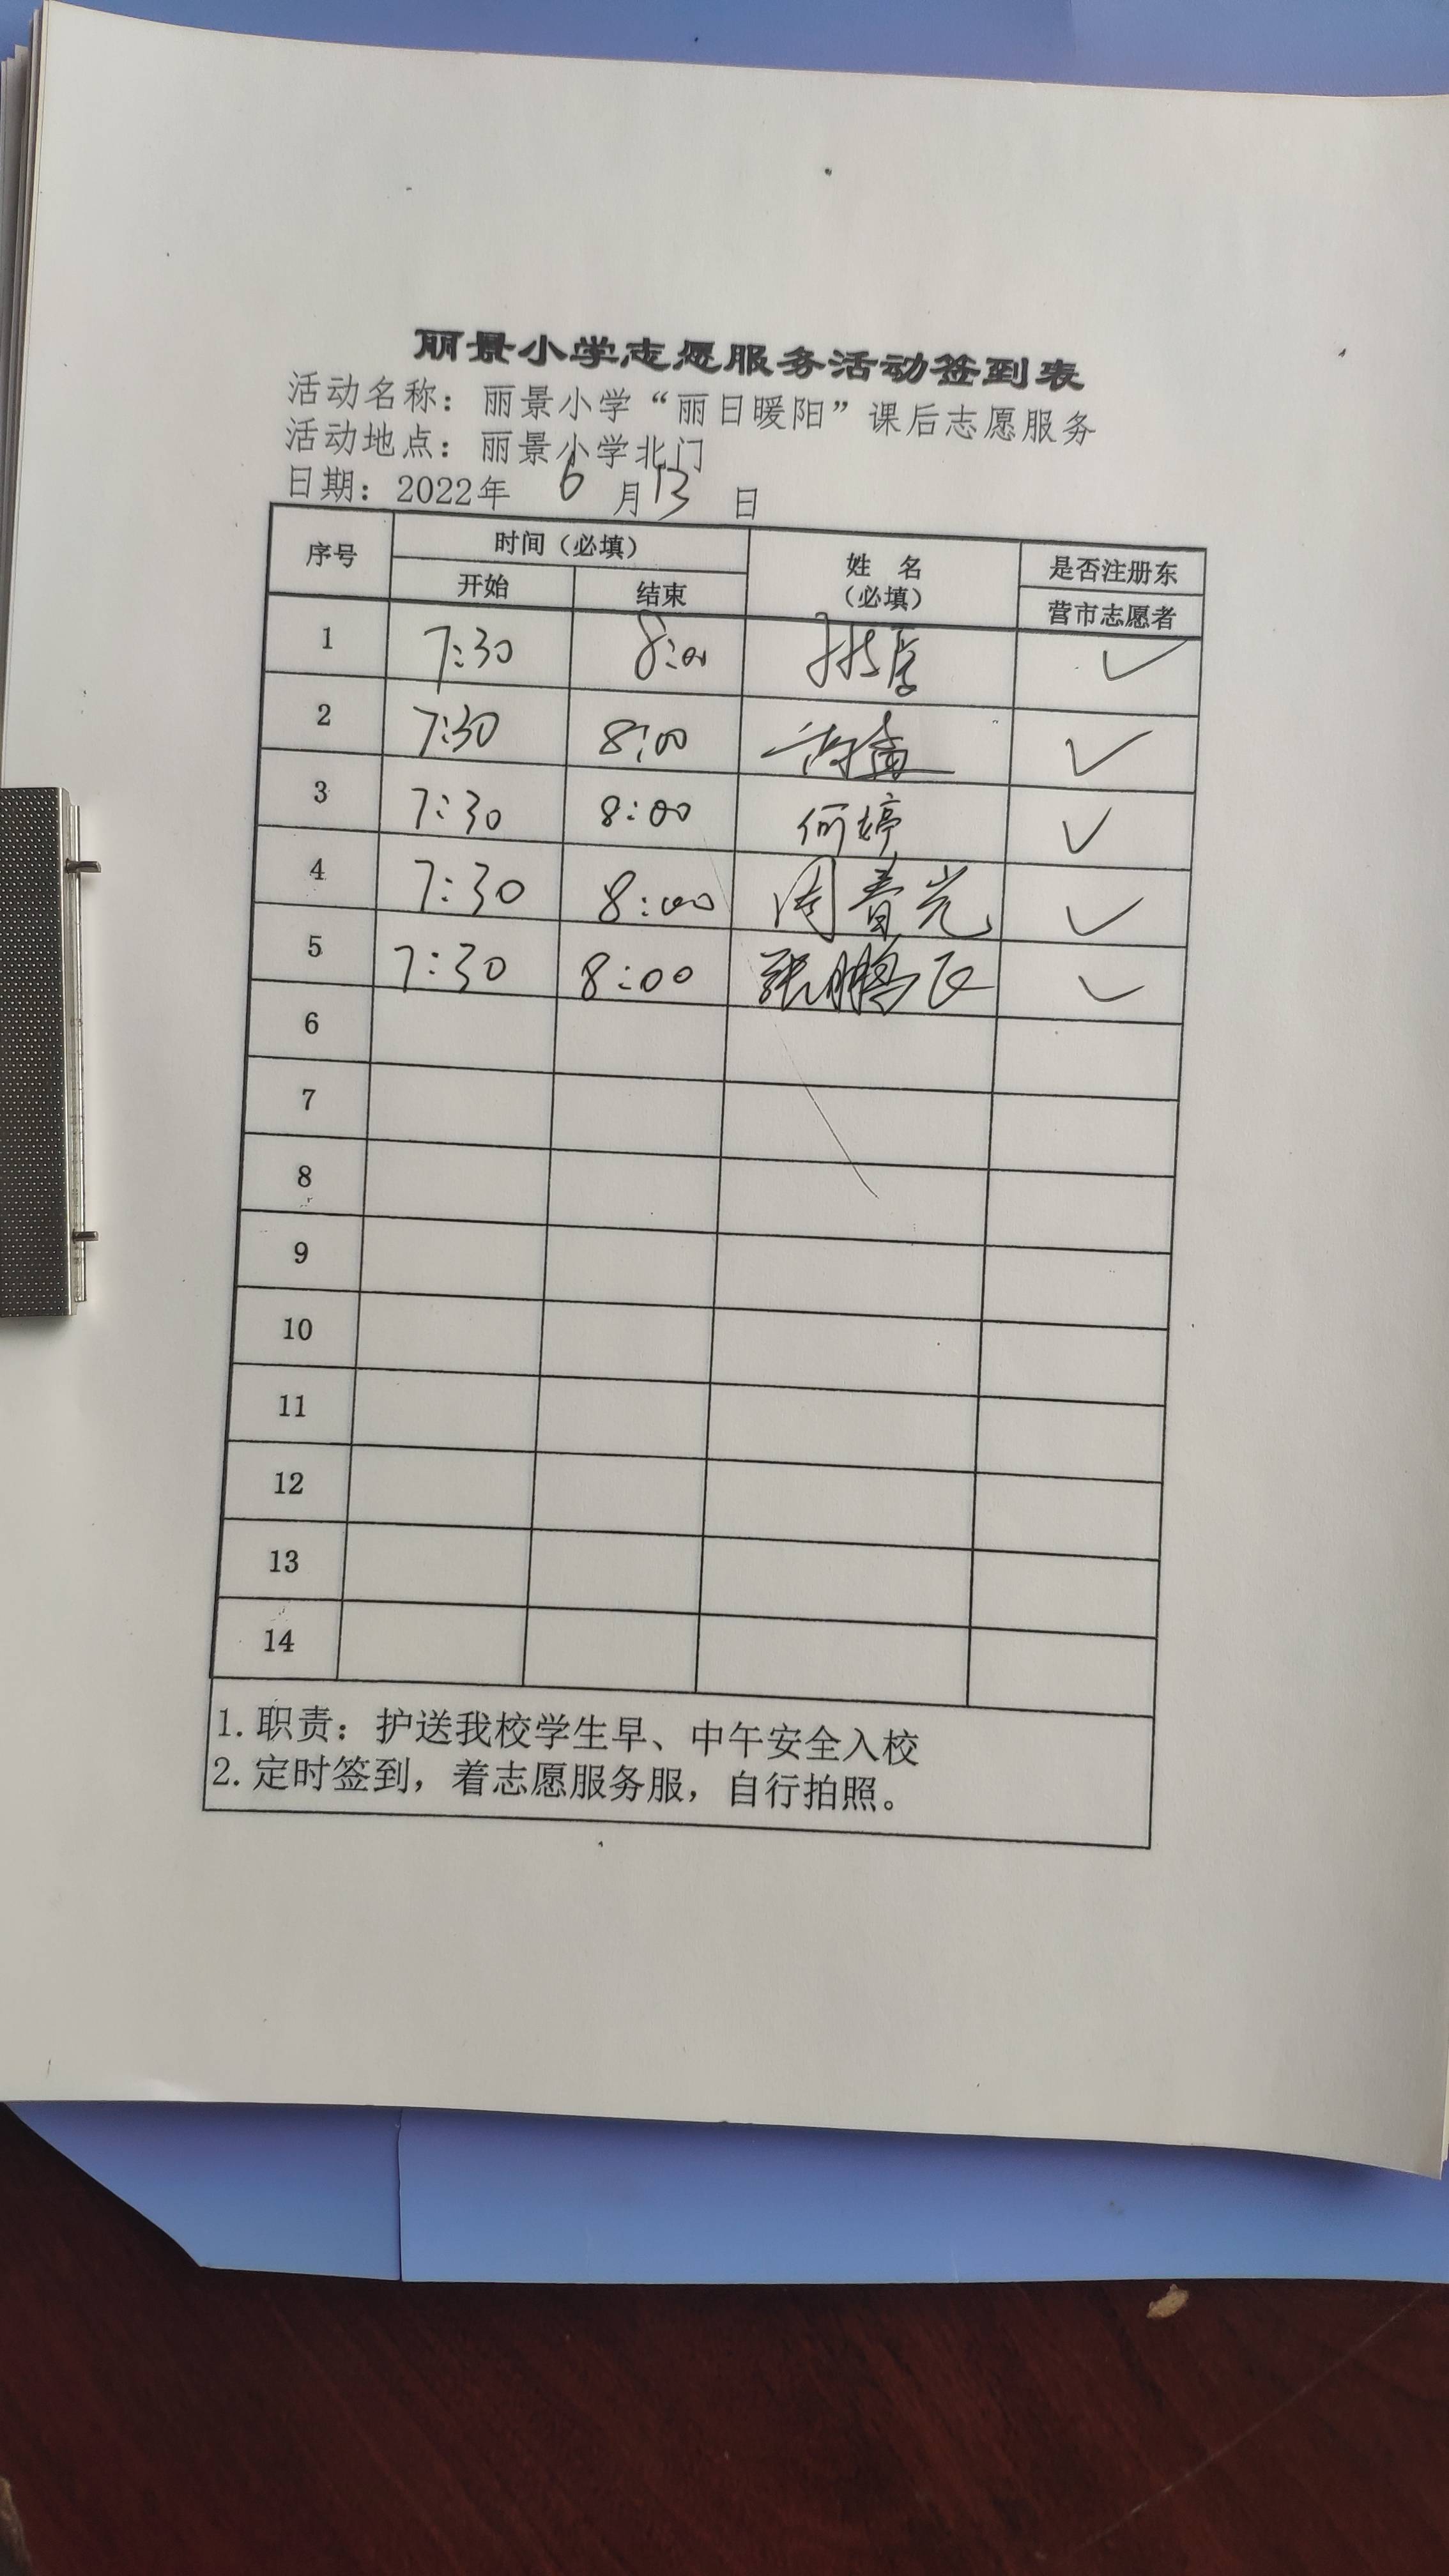 丽景小学志愿服务活动签到表
活动名称：丽景小学“丽日暖阳”课后志愿服务
活动地点：丽景小学北门
日期：2022年 6 月 13 日
序号 时间（必填） 姓 名 是否注册东
开始 结束 （必填） 营市志愿者
1 7:30 8:00 ✓
2 7:30 8:00 ✓
3 7:30 8:00 何婷 ✓
4 7:30 8:00 周春光 ✓
5 7:30 8:00 张鹏飞 ✓
6
7
8
9
10
11
12
13
14
1.职责：护送我校学生早、中午安全入校
2.定时签到，着志愿服务服，自行拍照。